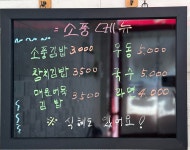 = 소풍 메뉴
소풍김밥 3.000 우동 5.000
참치김밥 3500 국수 5.000
매운어묵김밥 3500 라면 4.000
※ 식혜도 있어요!